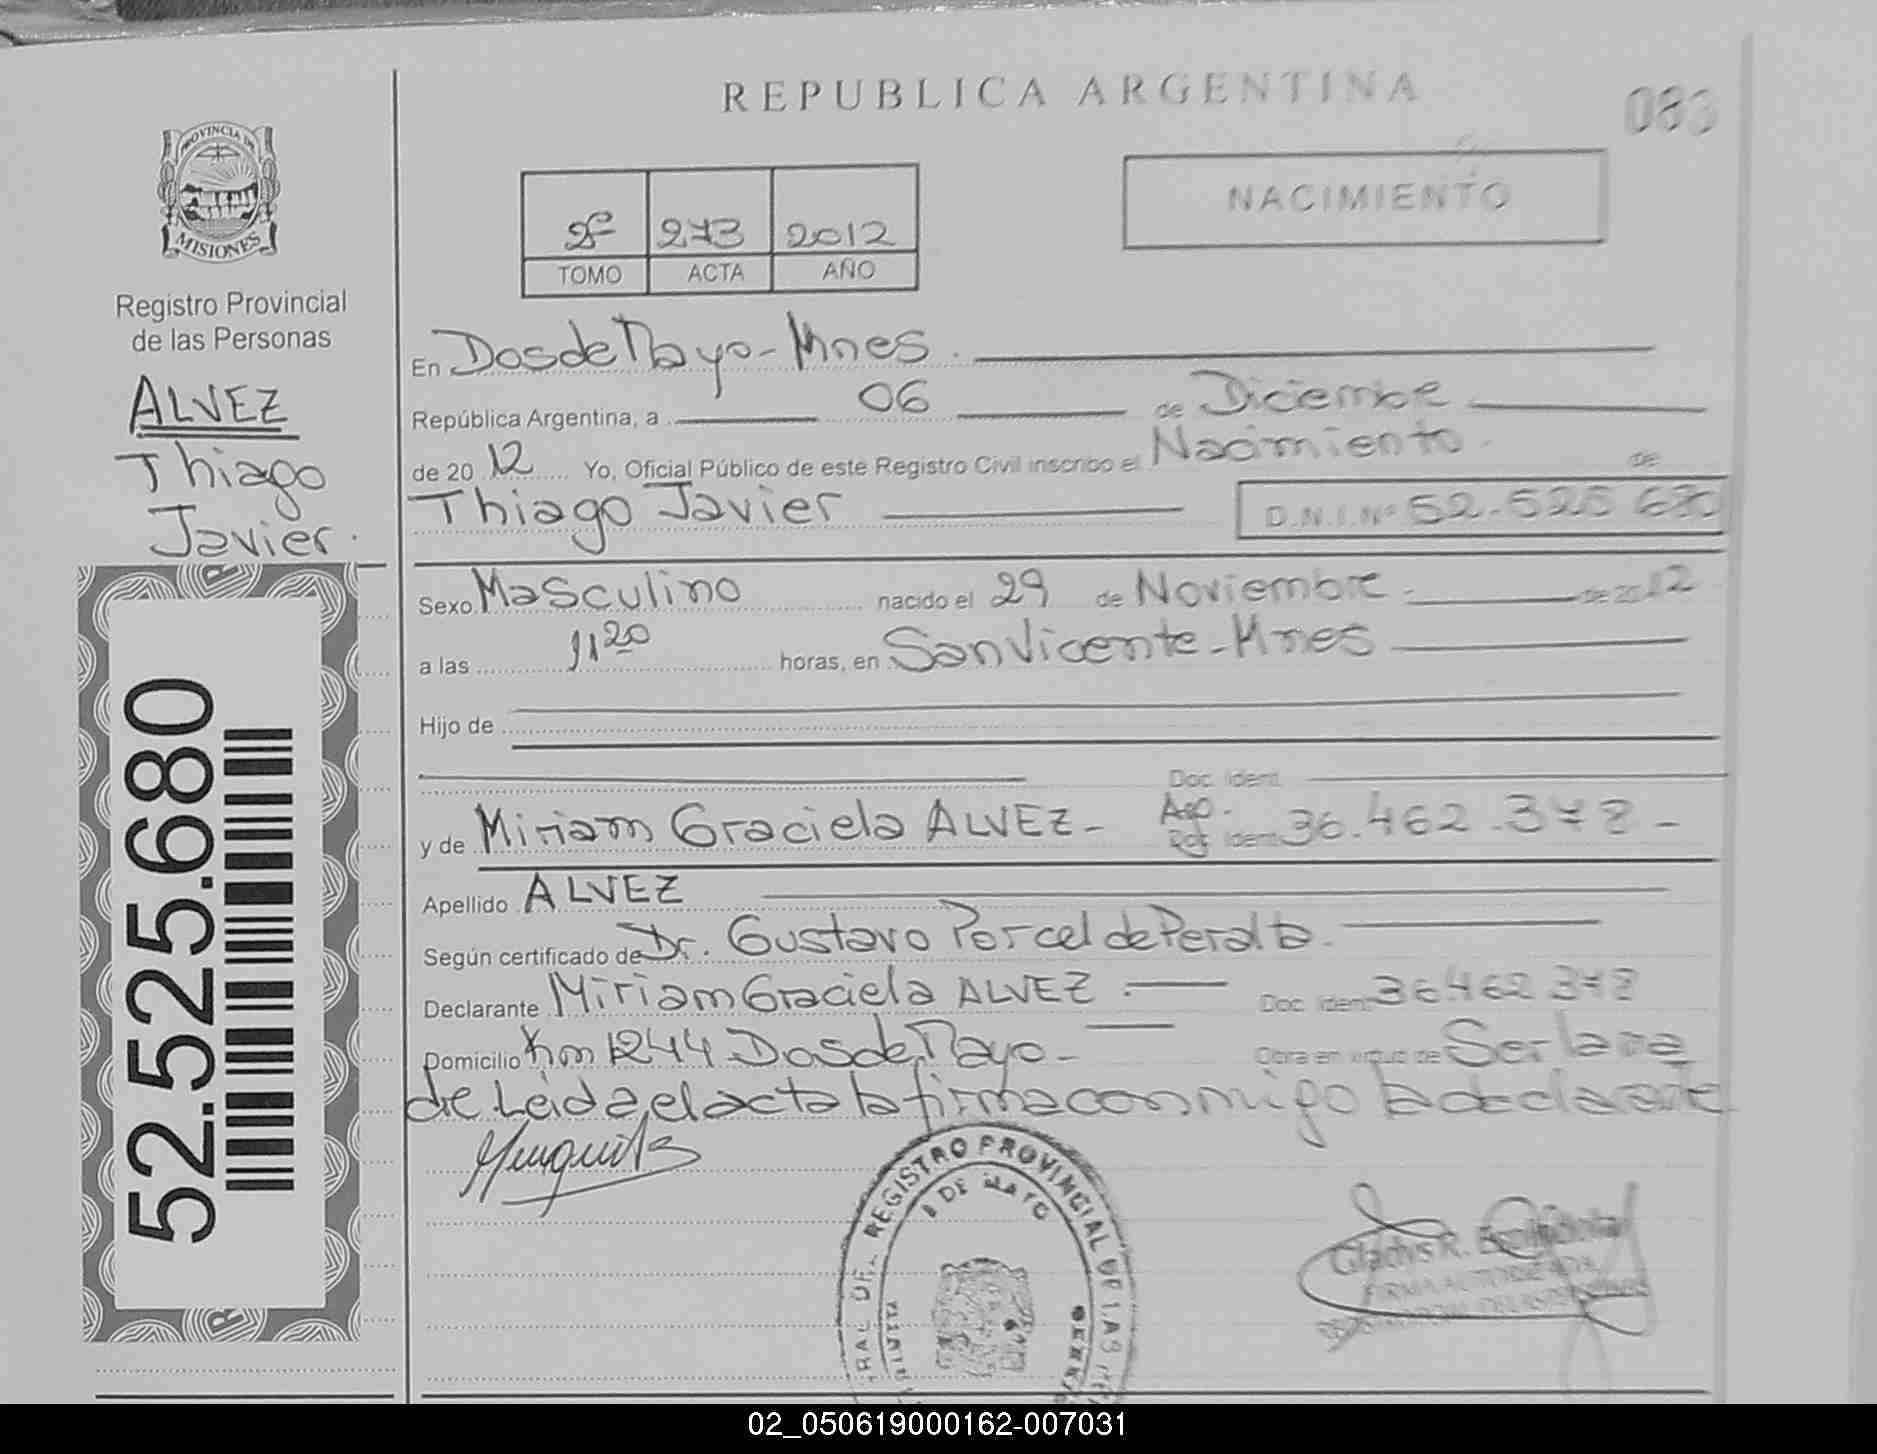 REPUBLICA ARGENTINA
083
PROVINCIA DE
MISIONES
Registro Provincial
de las Personas
ALVEZ
Thiago
Javier.
52.525.680
2º 273 2012
TOMO ACTA AÑO
NACIMIENTO
En Dos de Mayo - Mnes.
República Argentina, a 06 de Diciembre
de 20 12 Yo, Oficial Público de este Registro Civil inscribo el Nacimiento de
Thiago Javier D.N.I.Nº 52.525 680
Sexo Masculino nacido el 29 de Noviembre de 2012
a las 11 20 horas, en San Vicente - Mnes
Hijo de
Doc. Ident.
y de Miriam Graciela ALVEZ - Arg. Doc. Ident. 36.462.378 -
Apellido ALVEZ
Según certificado de Dr. Gustavo Porcel de Peralta.
Declarante Miriam Graciela ALVEZ. Doc. Ident. 36462378
Domicilio Km 1244 Dos de Mayo - Obra en virtud de Ser la ma
dre. Leida el acta la firma conmigo la declarante
REGISTRO PROVINCIAL DE LAS
DE MAYO
Gladys R.
FIRMA AUTORIZADA
02_050619000162-007031